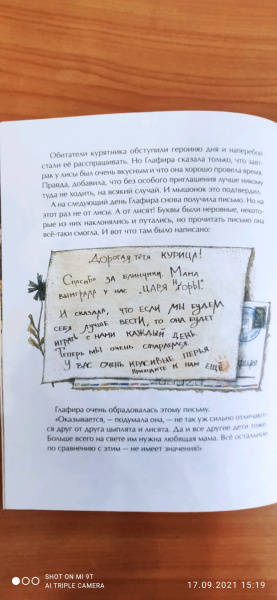 Обитатели курятника обступили героиню дня и наперебой
стали её расспрашивать. Но Глафира сказала только, что завт-
рак у лисы был очень вкусным и что она хорошо провела время.
Правда, добавила, что без особого приглашения лучше никому
туда не ходить, на всякий случай. И мышонок это подтвердил.
А на следующий день Глафира снова получила письмо. Но на
этот раз не от лисы. А от лисят! Буквы были неровные, некото-
рые из них наклонялись и путались, но прочитать письмо она
всё-таки смогла. И вот что там было написано:
Дорогая тётя КУРИЦА!
Спасибо за блинчики. Мама
выиграла у нас "ЦАРЯ ГОРЫ".
И сказала, что если мы будем
себя лучше вести, то она будет
играть с нами каждый день.
Теперь мы очень стараемся.
У вас очень красивые перья
Приходите к нам ещё
Глафира очень обрадовалась этому письму.
«Оказывается, — подумала она, — не так уж сильно отличают-
ся друг от друга цыплята и лисята. Да и все другие дети тоже.
Больше всего на свете им нужна любящая мама. Всё остальное
по сравнению с этим — не имеет значения!»
SHOT ON MI 9T
AI TRIPLE CAMERA
17.09.2021 15:19